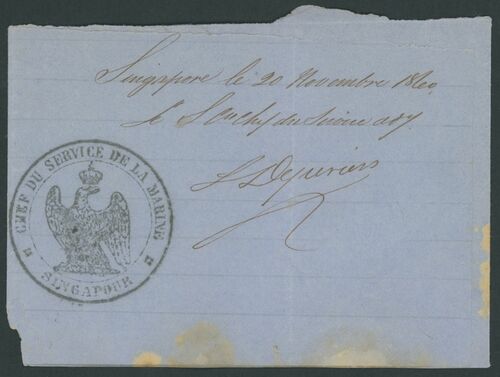 Singapore le 20 Novembre 1860
le S Ou Chef du Service
CHEF DU SERVICE DE LA MARINE
SINGAPOUR